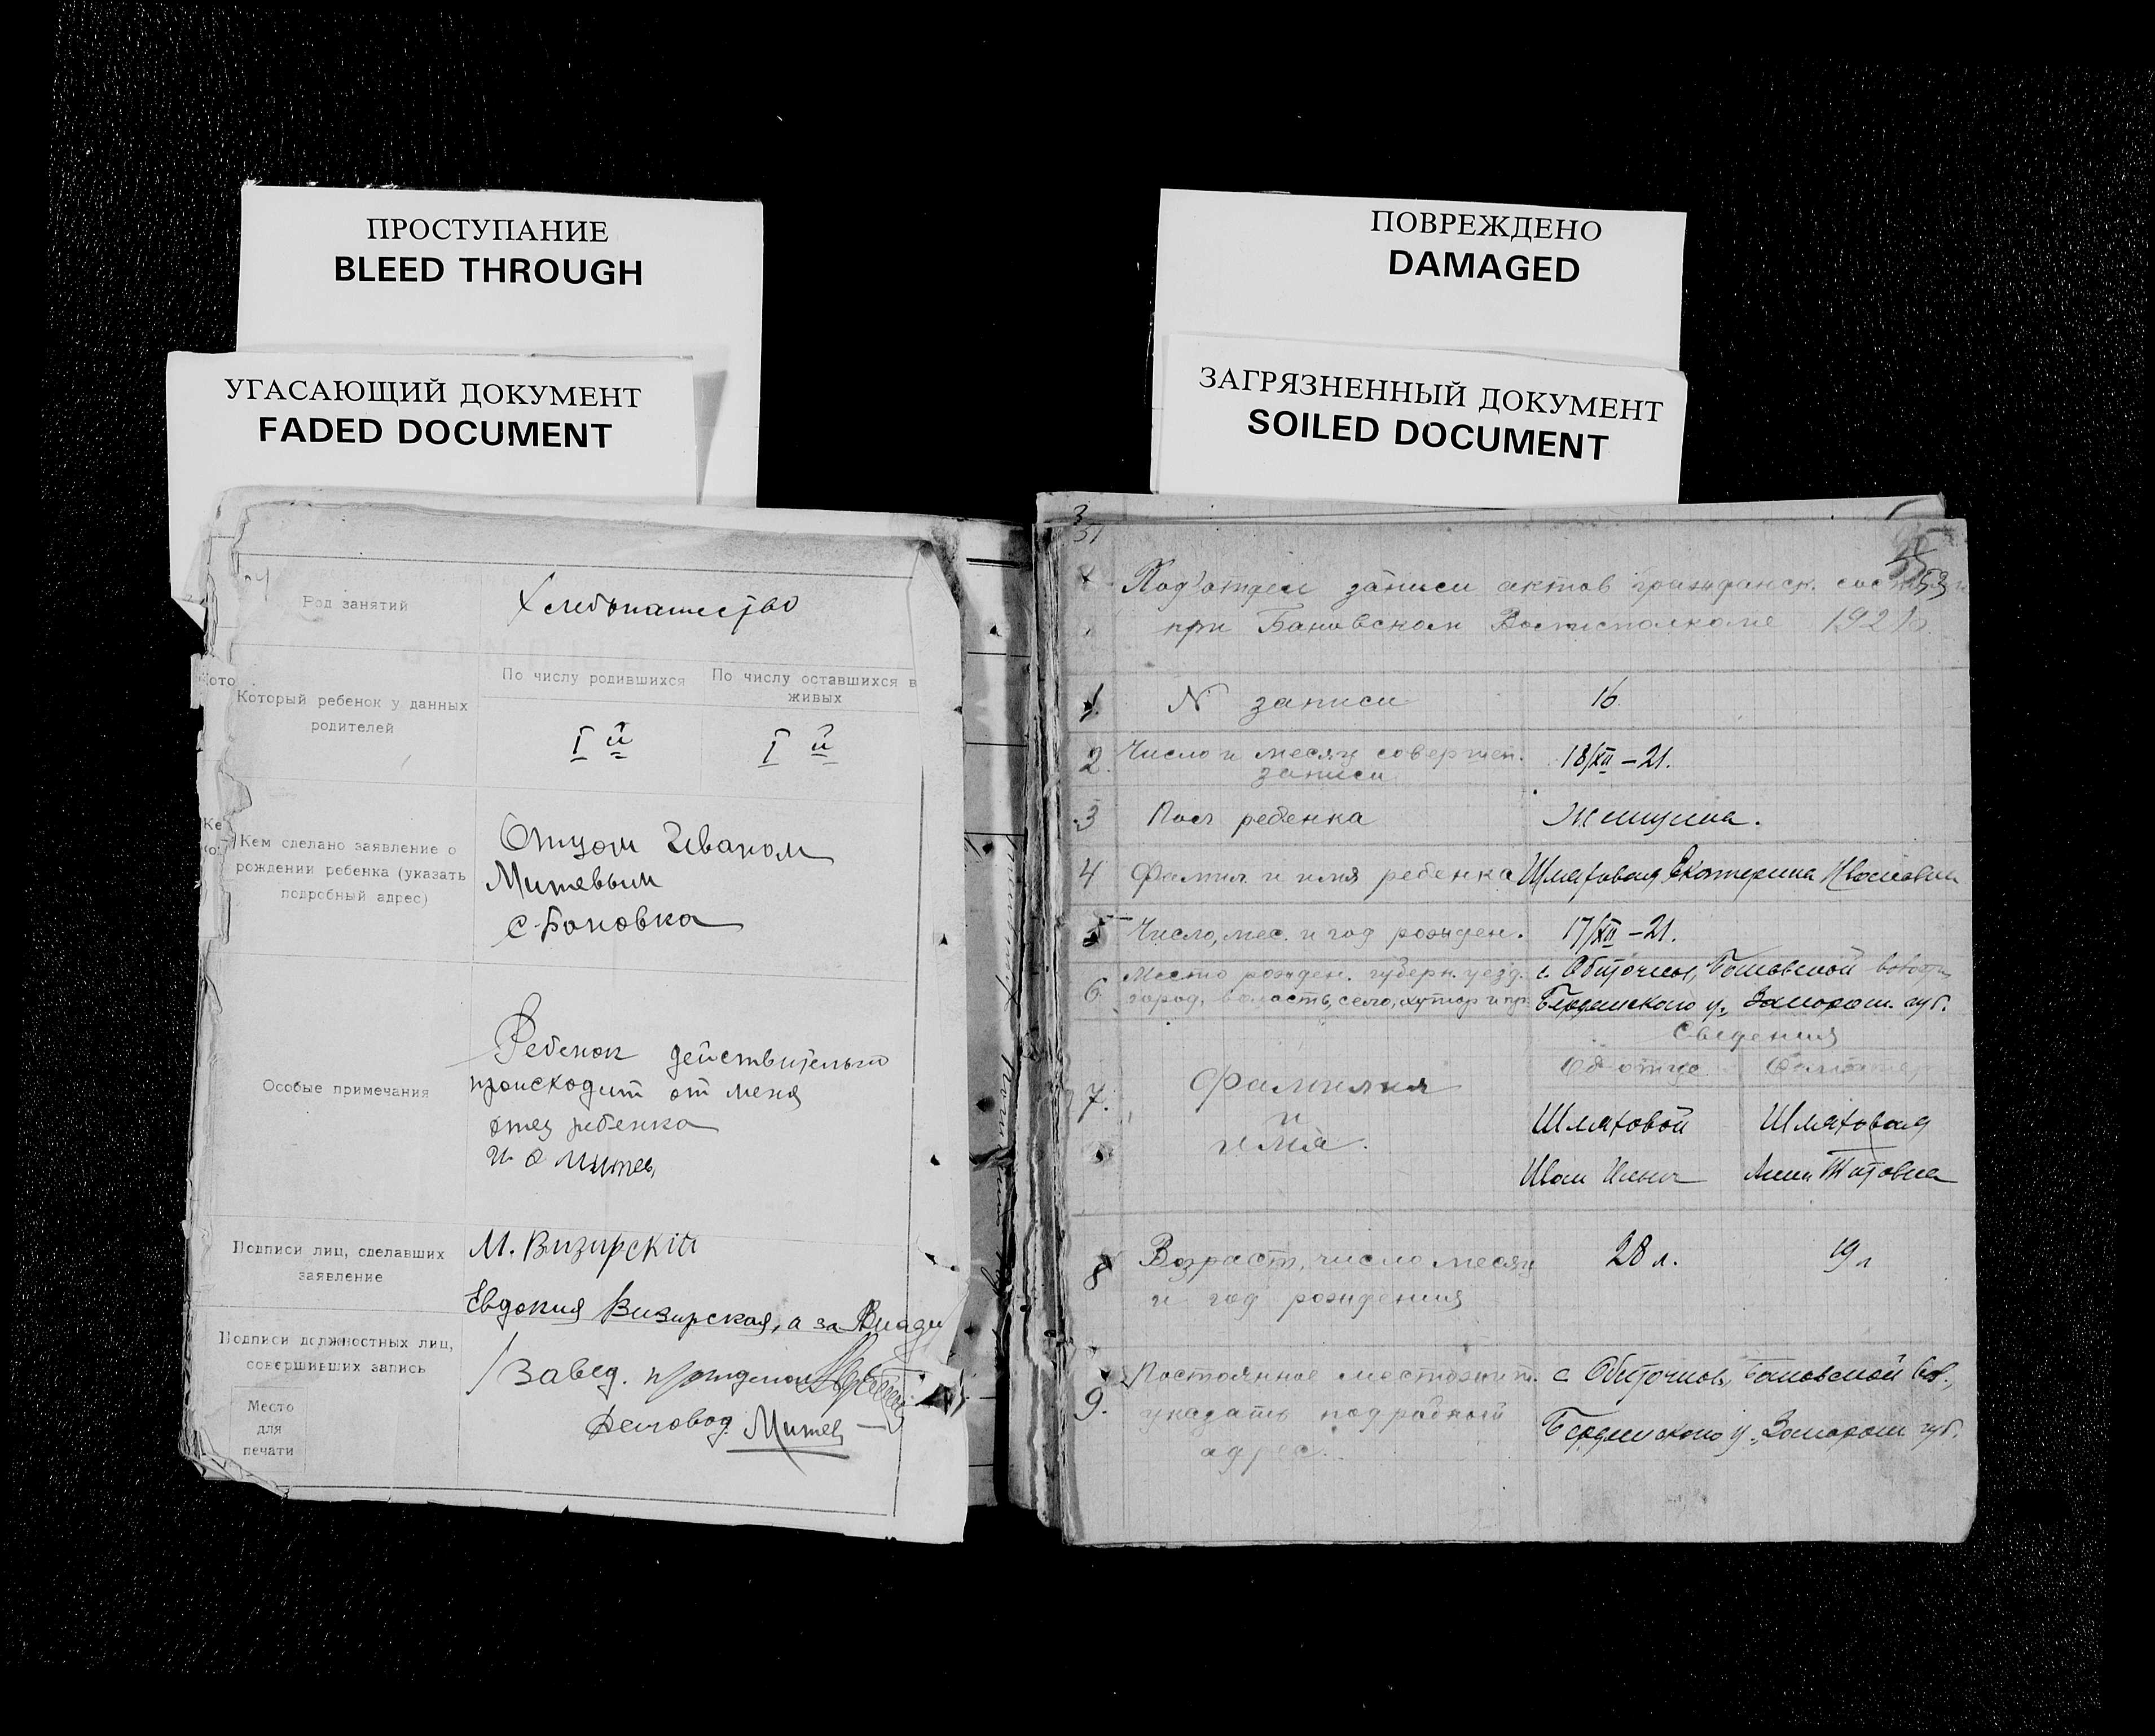 ПРОСТУПАНИЕ
BLEED THROUGH
УГАСАЮЩИЙ ДОКУМЕНТ
FADED DOCUMENT
Род занятий
Хлебопашество
Который ребенок у данных
родителей
По числу родившихся
По числу оставшихся в
живых
I й
I й
Кем сделано заявление о
рождении ребенка (указать
подробный адрес)
Отцом Иваном
Митевым
с. Бановка
Особые примечания
Ребенок действительно
происходит от меня
отец ребенка
Митев
Подписи лиц, сделавших
заявление
М. Визирскій
Евдокия Визирская, а за
Подписи должностных лиц,
совершивших запись
Завед.
Деловод. Митев
Место
для
печати
ПОВРЕЖДЕНО
DAMAGED
ЗАГРЯЗНЕННЫЙ ДОКУМЕНТ
SOILED DOCUMENT
53
Под'отдел записи актов гражданск.
при Бановском Волисполкоме 1921
1. N записи 16
2. Число и месяц совершен.
записи
18/XII – 21.
3 Пол ребенка Женщина.
4 Фамил. и имя ребенка Шляховая Екатерина Ивановна
5 Число, мес. и год рожден. 17/XII – 21.
6 Место рожден. губерн. уезд.
город, волость, село, хутор и пр.
с. Обиточное, Бановской волости
Бердянского у., Запорож. губ.
Сведения
Об отце
О матери
7. Фамилия
и
имя.
Шляховой
Иван Ильич
Шляховая
Анна Титовна
8 Возраст, число месяц
и год рождения
28 л.
19 л
9. Постоянное местожит.
указать подробный
адрес.
с Обиточное, Бановской вол.,
Бердянского у., Запорож губ.